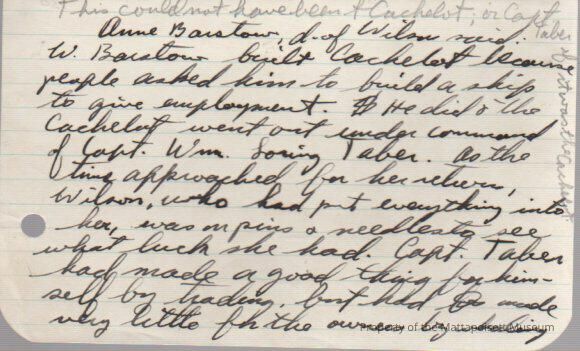 This could not have been t Cachelot, or Capt.
Taber if it was the Cachelot.
Anne Barstow, d. of Wilson said.
W. Barstow built Cachelot because
people asked him to build a ship
to give employment. He did & the
Cachelot went out under command
of Capt. Wm. Loring Taber. As the
time approached for her return,
Wilson, who had put everything into
her, was on pins & needles to see
what luck she had. Capt. Taber
had made a good thing for him-
self by trading, but had made
very little for the owners by
Property of the Mattapoisett Museum